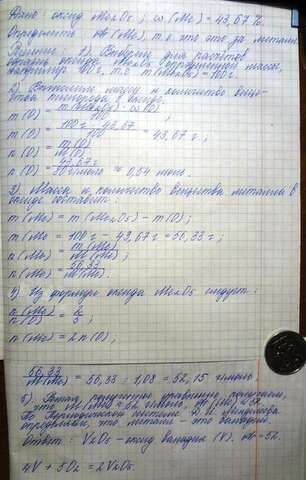 Дано оксид Me₂O₅; ω(Me) = 43,67 %.
Определить: Ar(Me), т.е. что это за металл.
Решение: 1). Выберем для расчетов
оксида Me₂O₅ массы,
например 100 г, т.е. m(Me₂O₅) = 100г.
2) Вычислим массу и количество веще-
ства кислорода в оксиде.
m(O) = m(Me₂O₅) · ω(O) / 100 ;
m(O) = 100 г · 43,67 / 100 = 43,67 г;
n(O) = m(O) / M(O) ;
n(O) = 43,67 г / г/моль ≈ 0,54 моль.
3) Масса и количество вещества металла в
оксиде составит:
m(Me) = m(Me₂O₅) – m(O);
m(Me = 100г – 43,67г = 56,33 г;
n(Me) = m(Me) / M(Me) ;
n(Me) = 56,33 / M(Me) ;
4) Из формулы оксида Me₂O₅ следует:
n(Me) / n(O) = 2 / 5 ;
n(Me) = 2n(O);
56,33 / M(Me) = 56,33 : 1,08 = 52,15 г/моль
5). Решая полученное уравнение, получаем,
что M(Me) = 52 г/моль, Ar(Me) = 52.
По Периодической системе Д. И. Менделеева
определяем, что металл – это ванадий.
Ответ: V₂O₅ – оксид ванадия (V). = 52.
4V + 5O₂ = 2V₂O₅.